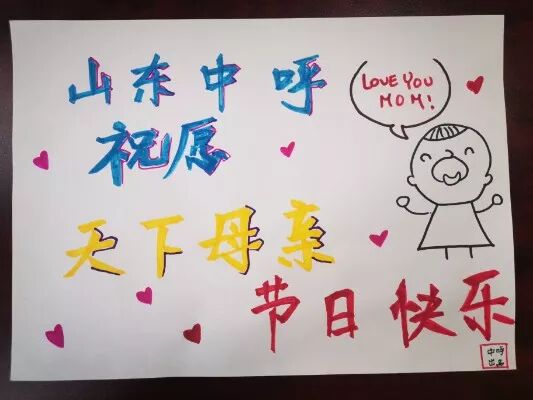 山东中呼
祝愿
LOVE YOU
MOM!
天下母亲
节日快乐
中呼
出品